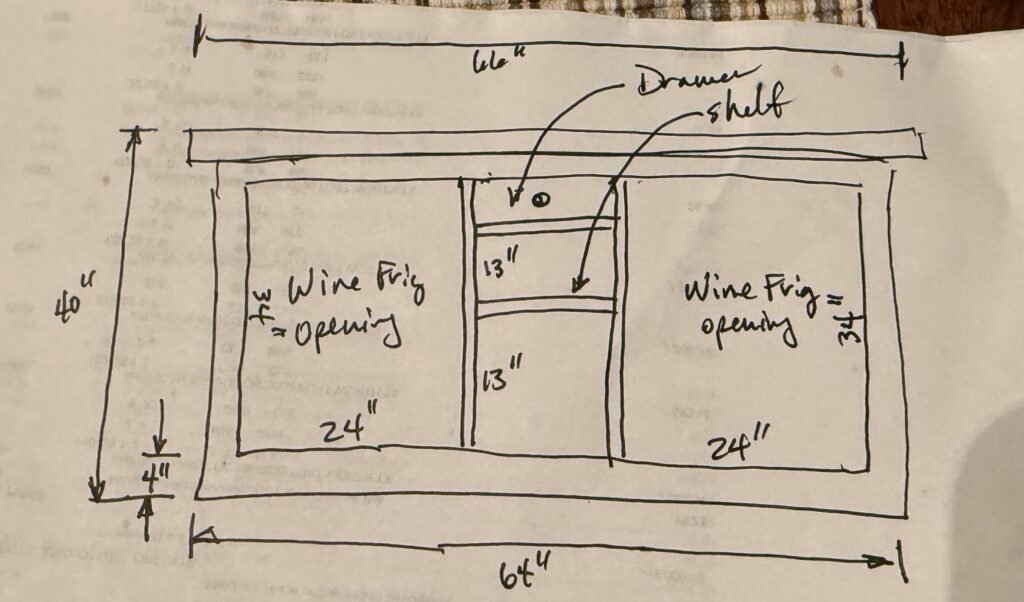 66"
Drawer
shelf
40"
13"
Wine Frig
opening
34"
Wine Frig
opening
34"
13"
24"
24"
4"
64"